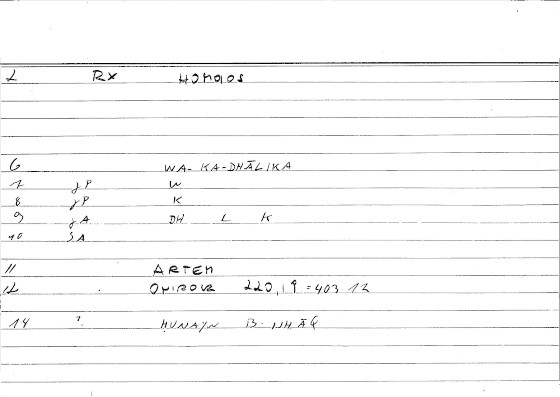 2 RX HOMOIOS
6 WA-KA-DHĀLIKA
7 jP W
8 jP K
9 jA DH L K
10 JA
11 ARTEM
12 ONIROCR 220,19 = 403 12
14 ? HUNAYN B. ISHĀQ